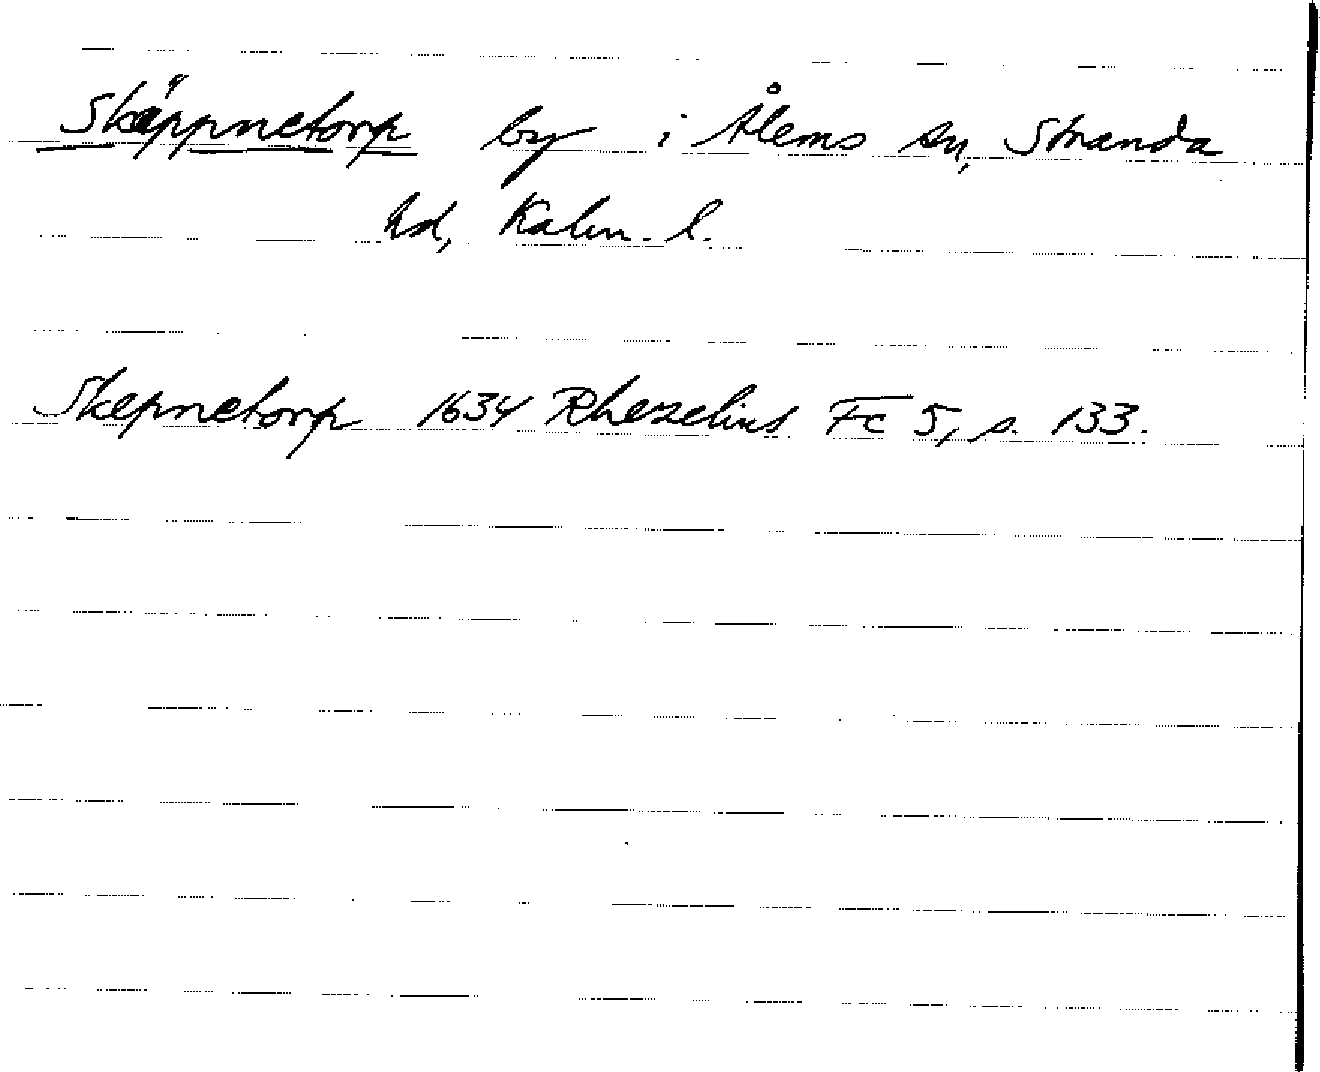 Skäppnetorp by i Ålems sn, Stranda
hd, Kalm. l.
Skepnetorp 1634 Rhezelius Fc 5, s. 133.